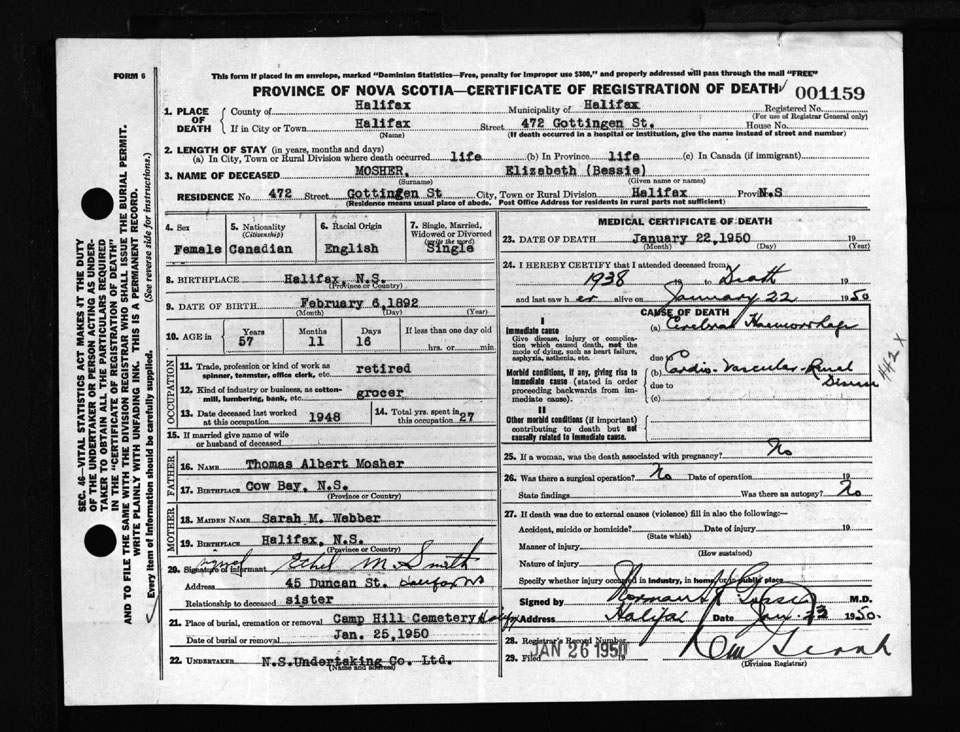 FORM 6
This form if placed in an envelope, marked "Dominion Statistics—Free, penalty for improper use $300," and properly addressed will pass through the mail "FREE"
PROVINCE OF NOVA SCOTIA—CERTIFICATE OF REGISTRATION OF DEATH 001159
1. PLACE OF DEATH
County of Halifax Municipality of Halifax Registered No.
(For use of Registrar General only)
If in City or Town Halifax Street 472 Gottingen St. House No.
(Name) (If death occurred in a hospital or institution, give the name instead of street and number)
2. LENGTH OF STAY (in years, months and days)
(a) In City, Town or Rural Division where death occurred life (b) In Province life (c) In Canada (if immigrant)
3. NAME OF DECEASED MOSHER, Elizabeth (Bessie)
(Surname) (Given name or names)
RESIDENCE No. 472 Street Gottingen St City, Town or Rural Division Halifax Province N.S
(Residence means usual place of abode. Post Office Address for residents in rural parts not sufficient)
4. Sex
Female
5. Nationality
(Citizenship)
Canadian
6. Racial Origin
English
7. Single, Married, Widowed or Divorced
(write the word)
Single
8. BIRTHPLACE Halifax, N.S.
(Province or Country)
9. DATE OF BIRTH February 6, 1892
(Month) (Day) (Year)
10. AGE in Years Months Days If less than one day old
57 11 16 hrs. or min.
OCCUPATION
11. Trade, profession or kind of work as spinner, teamster, office clerk, etc. retired
12. Kind of industry or business, as cotton-mill, lumbering, bank, etc. grocer
13. Date deceased last worked at this occupation 1948 14. Total yrs. spent in this occupation 27
15. If married give name of wife or husband of deceased
FATHER
16. NAME Thomas Albert Mosher
17. BIRTHPLACE Cow Bay, N.S.
(Province or Country)
MOTHER
18. MAIDEN NAME Sarah M. Webber
19. BIRTHPLACE Halifax, N.S.
(Province or Country)
20. Signature of informant Ethel M Smith
Address 45 Duncan St. Halifax NS
Relationship to deceased sister
21. Place of burial, cremation or removal Camp Hill Cemetery Halifax
Date of burial or removal Jan. 25, 1950
22. UNDERTAKER N.S. Undertaking Co. Ltd.
(Name and address)
MEDICAL CERTIFICATE OF DEATH
23. DATE OF DEATH January 22, 1950 19
(Month) (Day) (Year)
24. I HEREBY CERTIFY that I attended deceased from
1938 19 to Death 19
and last saw h er alive on January 22 1950
CAUSE OF DEATH
I
Immediate cause
Give disease, injury or complication which caused death, not the mode of dying, such as heart failure, asphyxia, asthenia, etc.
(a) Cerebral Haemorrhage
due to
Morbid conditions, if any, giving rise to immediate cause (stated in order proceeding backwards from immediate cause).
(b) Cardio-Vascular-Renal Disease
due to
(c)
442 X
II
Other morbid conditions (if important) contributing to death but not causally related to immediate cause.
25. If a woman, was the death associated with pregnancy? No
26. Was there a surgical operation? No Date of operation 19
State findings Was there an autopsy? No
27. If death was due to external causes (violence) fill in also the following:—
Accident, suicide or homicide? Date of injury 19
(State which)
Manner of injury
(How sustained)
Nature of injury
Specify whether injury occurred in industry, in home, or in public place
Signed by Norman H M.D.
Address Halifax Date Jan 23 1950.
28. Registrar's Record Number
29. Filed JAN 26 1950
(Division Registrar)
SEC. 46—VITAL STATISTICS ACT MAKES IT THE DUTY OF THE UNDERTAKER OR PERSON ACTING AS UNDERTAKER TO OBTAIN ALL THE PARTICULARS REQUIRED IN THE "CERTIFICATE OF REGISTRATION OF DEATH" AND TO FILE THE SAME WITH THE DIVISION REGISTRAR WHO SHALL ISSUE THE BURIAL PERMIT.
WRITE PLAINLY WITH UNFADING INK. THIS IS A PERMANENT RECORD.
Every item of information should be carefully supplied. (See reverse side for instructions.)